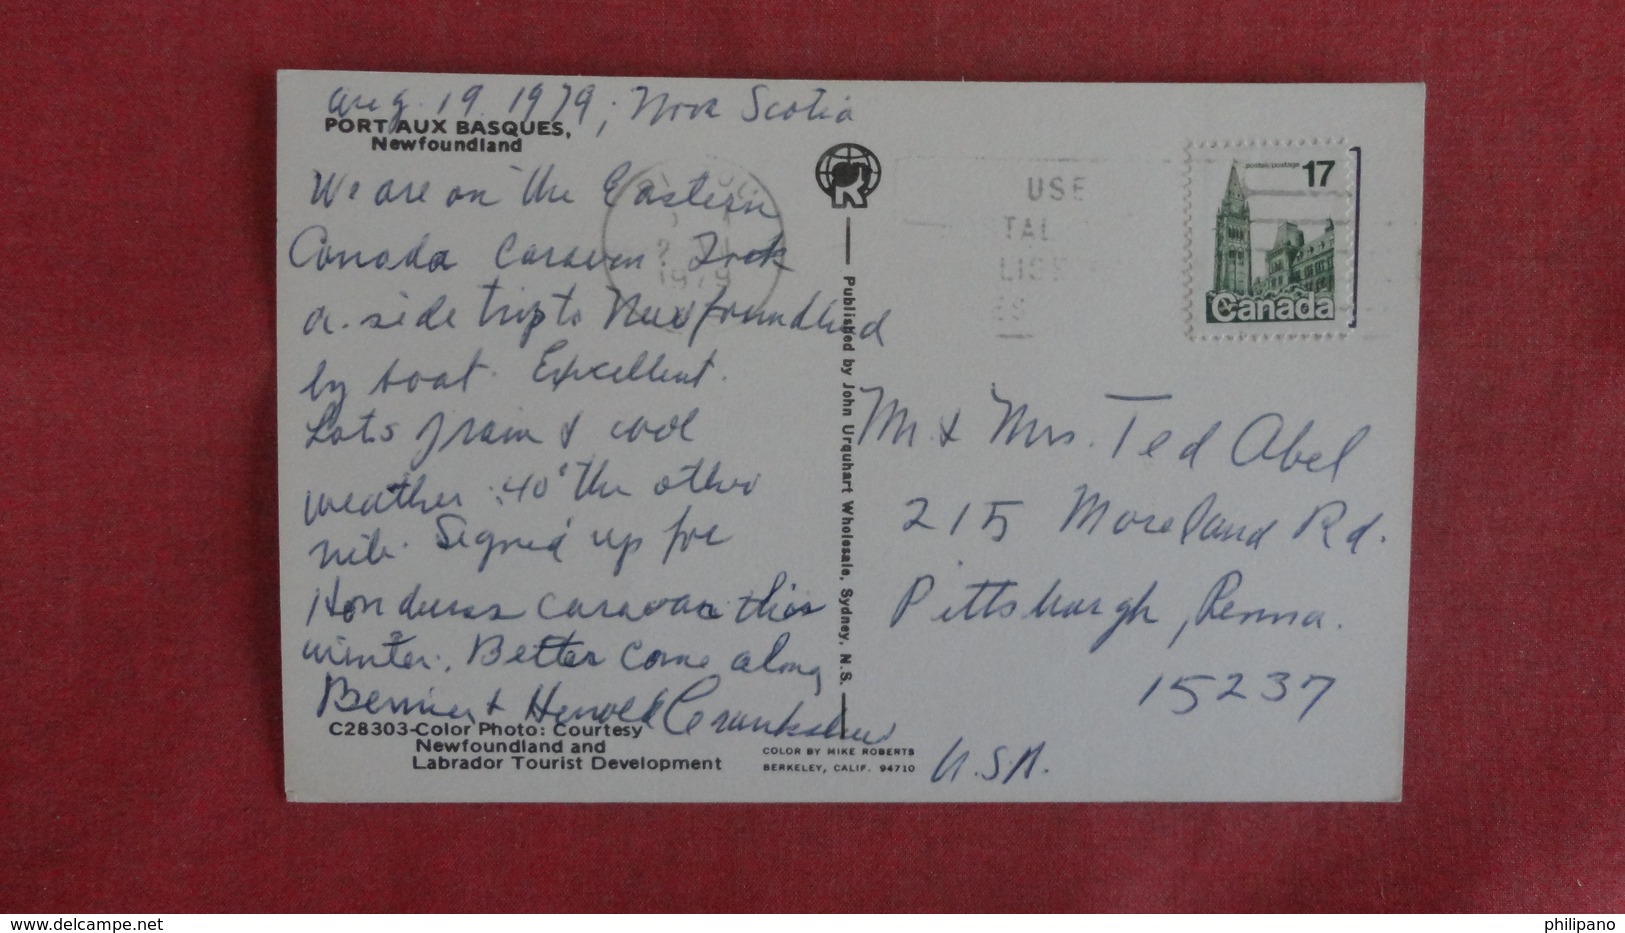 Aug. 19. 1979, Nova Scotia
PORT AUX BASQUES,
Newfoundland
We are on the Eastern
Canada Caravan. Took
a side trip to Newfoundland
by boat. Excellent.
Lots of rain & cool
weather. 40° the other
nite. Signed up for
Honduras caravan this
winter. Better come along
Bernie & Harold
C28303-Color Photo: Courtesy
Newfoundland and
Labrador Tourist Development
1979
R
Published by John Urquhart Wholesale, Sydney, N.S.
COLOR BY MIKE ROBERTS
BERKELEY, CALIF. 94710
USE
TAL
postes/postage
17
Canada
Mr. & Mrs. Ted Abel
215 Moreland Rd.
Pittsburgh, Penna.
15237
U.S.A.
www.delcampe.net
philipano